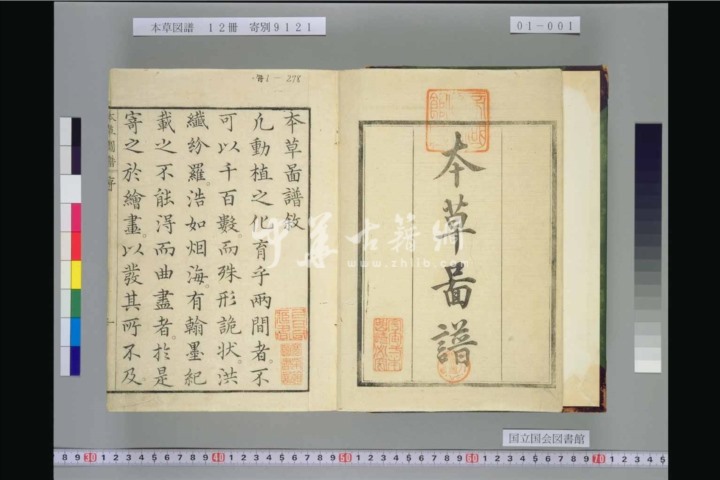 本草図譜 12冊 寄別9121
01-001
本草啚譜
本草啚譜敘
凢動植之化育乎兩間者。不
可以千百數。而殊形詭狀。洪
纖紛羅。浩如烟海。有翰墨紀
載之不能得而曲盡者。於是
寄之於繪畫。以發其所不及。
中华古籍网
www.zhlib.com
国立国会図書館
8 9 30 1 2 3 4 5 6 7 8 9 40 1 2 3 4 5 6 7 8 9 50 1 2 3 4 5 6 7 8 9 60 1 2 3 4 5 6 7 8 9 70 1 2 3 4 5